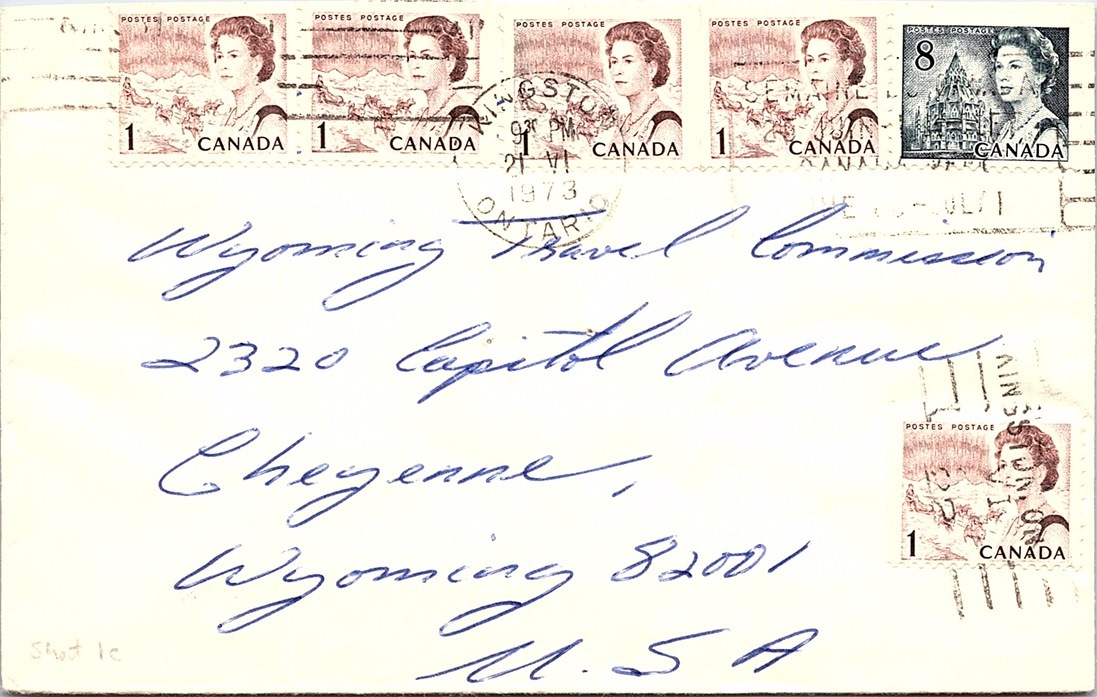 POSTES POSTAGE POSTES POSTAGE POSTES POSTAGE POSTES POSTAGE POSTES POSTAGE
1 CANADA 1 CANADA 1 CANADA 1 CANADA 8 CANADA
KINGSTON
PM
21 VI
1973
ONTARIO
SEMAINE
CANADA
Wyoming Travel Commission
2320 Capitol Avenue
Cheyenne,
Wyoming 82001
U.S A
POSTES POSTAGE
1 CANADA
KINGSTON, ON
Short 1c